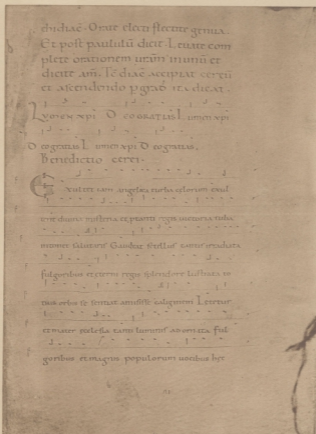 diaconi dicat. Orate electi flectite genua.
Et post paululũ dicit. Leuate com
plete orationem uram in unũ et
dicite am̃. Tc̃ diac̃ accipiat cereũ
et ascendendo p grad ita dicat.
Lumen xpi D eo gratias L umen xpi
D eo gratias L umen xpi D eo gratias.
benedictio cerei.
Exultet iam angelica turba celorum exul
tent diuina misteria et pro tanti regis uictoria tuba
intonet salutaris Gaudeat se tellus tantis irradiata
fulgoribus et eterni regis splendore lustrata to
tius orbis se sentiat amisisse caliginem Letetur
et mater ecclesia tanti luminis adornata ful
goribus et magnis populorum uocibus hec